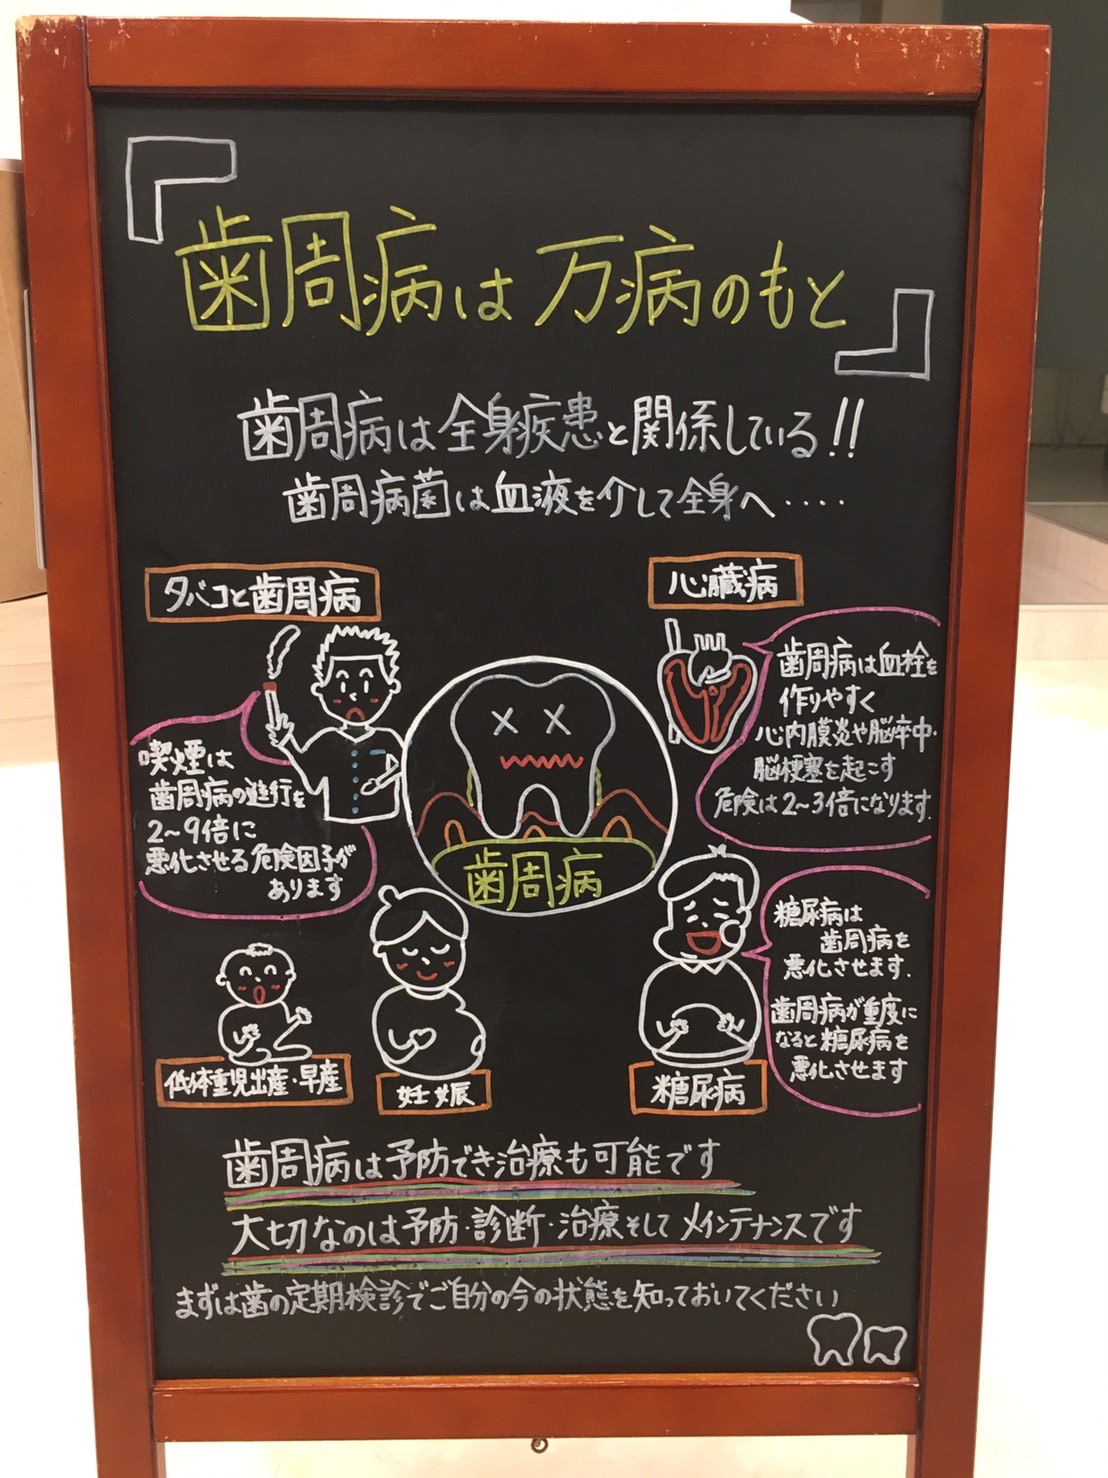 歯周病は万病のもと
歯周病は全身疾患と関係している!!
歯周病菌は血液を介して全身へ‥‥
タバコと歯周病
喫煙は
歯周病の進行を
2~9倍に
悪化させる危険因子が
あります
心臓病
歯周病は血栓を
作りやすく
心内膜炎や脳卒中・
脳梗塞を起こす
危険は2~3倍になります.
歯周病
低体重児出産・早産
妊娠
糖尿病
糖尿病は
歯周病を
悪化させます.
歯周病が重度に
なると糖尿病を
悪化させます
歯周病は予防でき治療も可能です
大切なのは予防・診断・治療そしてメインテナンスです
まずは歯の定期検診でご自分の今の状態を知っておいてください